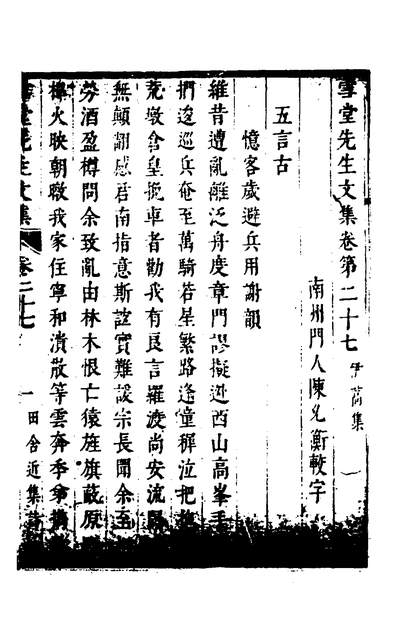 雪堂先生文集卷第二十七
集
南州門人陳允衡較字
五言古
憶客歲避兵用謝韻
維昔遭亂離泛舟度章門謬擬逃西山高峯手
捫逡巡兵奄至萬騎若星繁路逢童穉泣把
荒墩倉皇挽車者勸我有良言羅渡尚安流
無顛翻感君南指意斯誼實難諼宗長聞余至
芬酒盈樽問余致亂由林木恨亡猿旌旗蔽原
火映朝暾我家住寧和潰散等雲奔季
雪堂先生文集
卷二十七
一
田舍近集